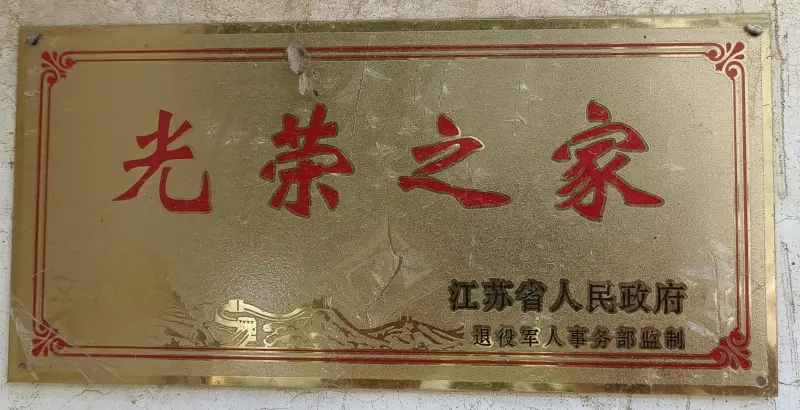 光荣之家
江苏省人民政府
退役军人事务部监制